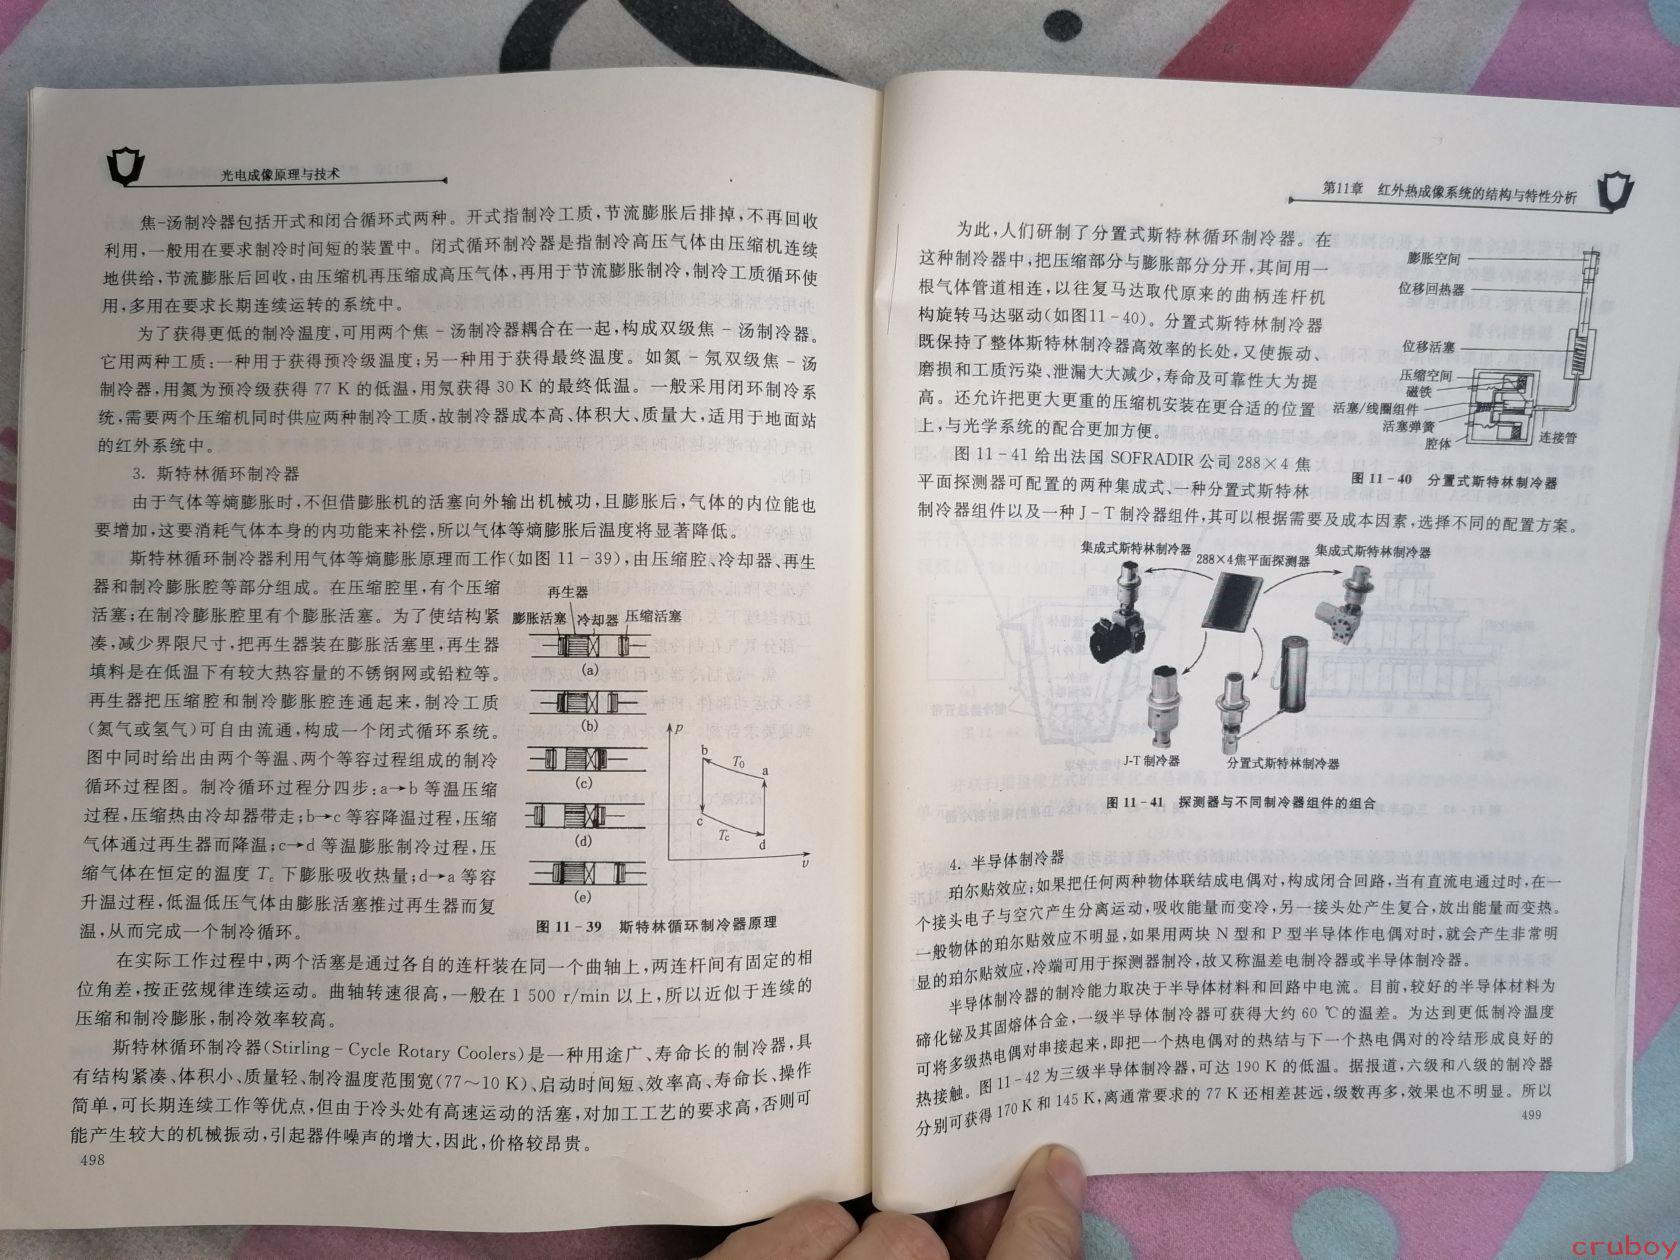 光电成像原理与技术
焦-汤制冷器包括开式和闭合循环式两种。开式指制冷工质,节流膨胀后排掉,不再回收
利用,一般用在要求制冷时间短的装置中。闭式循环制冷器是指制冷高压气体由压缩机连续
地供给,节流膨胀后回收,由压缩机再压缩成高压气体,再用于节流膨胀制冷,制冷工质循环使
用,多用在要求长期连续运转的系统中。
为了获得更低的制冷温度,可用两个焦-汤制冷器耦合在一起,构成双级焦-汤制冷器。
它用两种工质:一种用于获得预冷级温度;另一种用于获得最终温度。如氮-氖双级焦-汤
制冷器,用氮为预冷级获得 77 K 的低温,用氖获得 30 K 的最终低温。一般采用闭环制冷系
统,需要两个压缩机同时供应两种制冷工质,故制冷器成本高、体积大、质量大,适用于地面站
的红外系统中。
3. 斯特林循环制冷器
由于气体等熵膨胀时,不但借膨胀机的活塞向外输出机械功,且膨胀后,气体的内位能也
要增加,这要消耗气体本身的内功能来补偿,所以气体等熵膨胀后温度将显著降低。
斯特林循环制冷器利用气体等熵膨胀原理而工作(如图 11-39),由压缩腔、冷却器、再生
器和制冷膨胀腔等部分组成。在压缩腔里,有个压缩
活塞;在制冷膨胀腔里有个膨胀活塞。为了使结构紧
凑,减少界限尺寸,把再生器装在膨胀活塞里,再生器
填料是在低温下有较大热容量的不锈钢网或铅粒等。
再生器把压缩腔和制冷膨胀腔连通起来,制冷工质
(氦气或氢气)可自由流通,构成一个闭式循环系统。
图中同时给出由两个等温、两个等容过程组成的制冷
循环过程图。制冷循环过程分四步:a→b 等温压缩
过程,压缩热由冷却器带走;b→c 等容降温过程,压缩
气体通过再生器而降温;c→d 等温膨胀制冷过程,压
缩气体在恒定的温度 Tc 下膨胀吸收热量;d→a 等容
升温过程,低温低压气体由膨胀活塞推过再生器而复
温,从而完成一个制冷循环。
再生器
膨胀活塞 冷却器 压缩活塞
(a)
(b)
(c)
(d)
(e)
p
b
T0
a
c
Tc
d
υ
图 11-39 斯特林循环制冷器原理
在实际工作过程中,两个活塞是通过各自的连杆装在同一个曲轴上,两连杆间有固定的相
位角差,按正弦规律连续运动。曲轴转速很高,一般在 1 500 r/min 以上,所以近似于连续的
压缩和制冷膨胀,制冷效率较高。
斯特林循环制冷器(Stirling-Cycle Rotary Coolers)是一种用途广、寿命长的制冷器,具
有结构紧凑、体积小、质量轻、制冷温度范围宽(77～10 K)、启动时间短、效率高、寿命长、操作
简单,可长期连续工作等优点,但由于冷头处有高速运动的活塞,对加工工艺的要求高,否则可
能产生较大的机械振动,引起器件噪声的增大,因此,价格较昂贵。
498
第11章 红外热成像系统的结构与特性分析
为此,人们研制了分置式斯特林循环制冷器。在
这种制冷器中,把压缩部分与膨胀部分分开,其间用一
根气体管道相连,以往复马达取代原来的曲柄连杆机
构旋转马达驱动(如图11-40)。分置式斯特林制冷器
既保持了整体斯特林制冷器高效率的长处,又使振动、
磨损和工质污染、泄漏大大减少,寿命及可靠性大为提
高。还允许把更大更重的压缩机安装在更合适的位置
上,与光学系统的配合更加方便。
膨胀空间
位移回热器
位移活塞
压缩空间
磁铁
活塞/线圈组件
活塞弹簧
腔体
连接管
图 11-40 分置式斯特林制冷器
图 11-41 给出法国 SOFRADIR 公司 288×4 焦
平面探测器可配置的两种集成式、一种分置式斯特林
制冷器组件以及一种 J-T 制冷器组件,其可以根据需要及成本因素,选择不同的配置方案。
集成式斯特林制冷器
288×4焦平面探测器
集成式斯特林制冷器
J-T 制冷器
分置式斯特林制冷器
图 11-41 探测器与不同制冷器组件的组合
4. 半导体制冷器
珀尔贴效应:如果把任何两种物体联结成电偶对,构成闭合回路,当有直流电通过时,在一
个接头电子与空穴产生分离运动,吸收能量而变冷,另一接头处产生复合,放出能量而变热。
一般物体的珀尔贴效应不明显,如果用两块 N 型和 P 型半导体作电偶对时,就会产生非常明
显的珀尔贴效应,冷端可用于探测器制冷,故又称温差电制冷器或半导体制冷器。
半导体制冷器的制冷能力取决于半导体材料和回路中电流。目前,较好的半导体材料为
碲化铋及其固熔体合金,一级半导体制冷器可获得大约 60 ℃的温差。为达到更低制冷温度
可将多级热电偶对串接起来,即把一个热电偶对的热结与下一个热电偶对的冷结形成良好的
热接触。图 11-42 为三级半导体制冷器,可达 190 K 的低温。据报道,六级和八级的制冷器
分别可获得 170 K 和 145 K,离通常要求的 77 K 还相差甚远,级数再多,效果也不明显。所以
499
cruboy